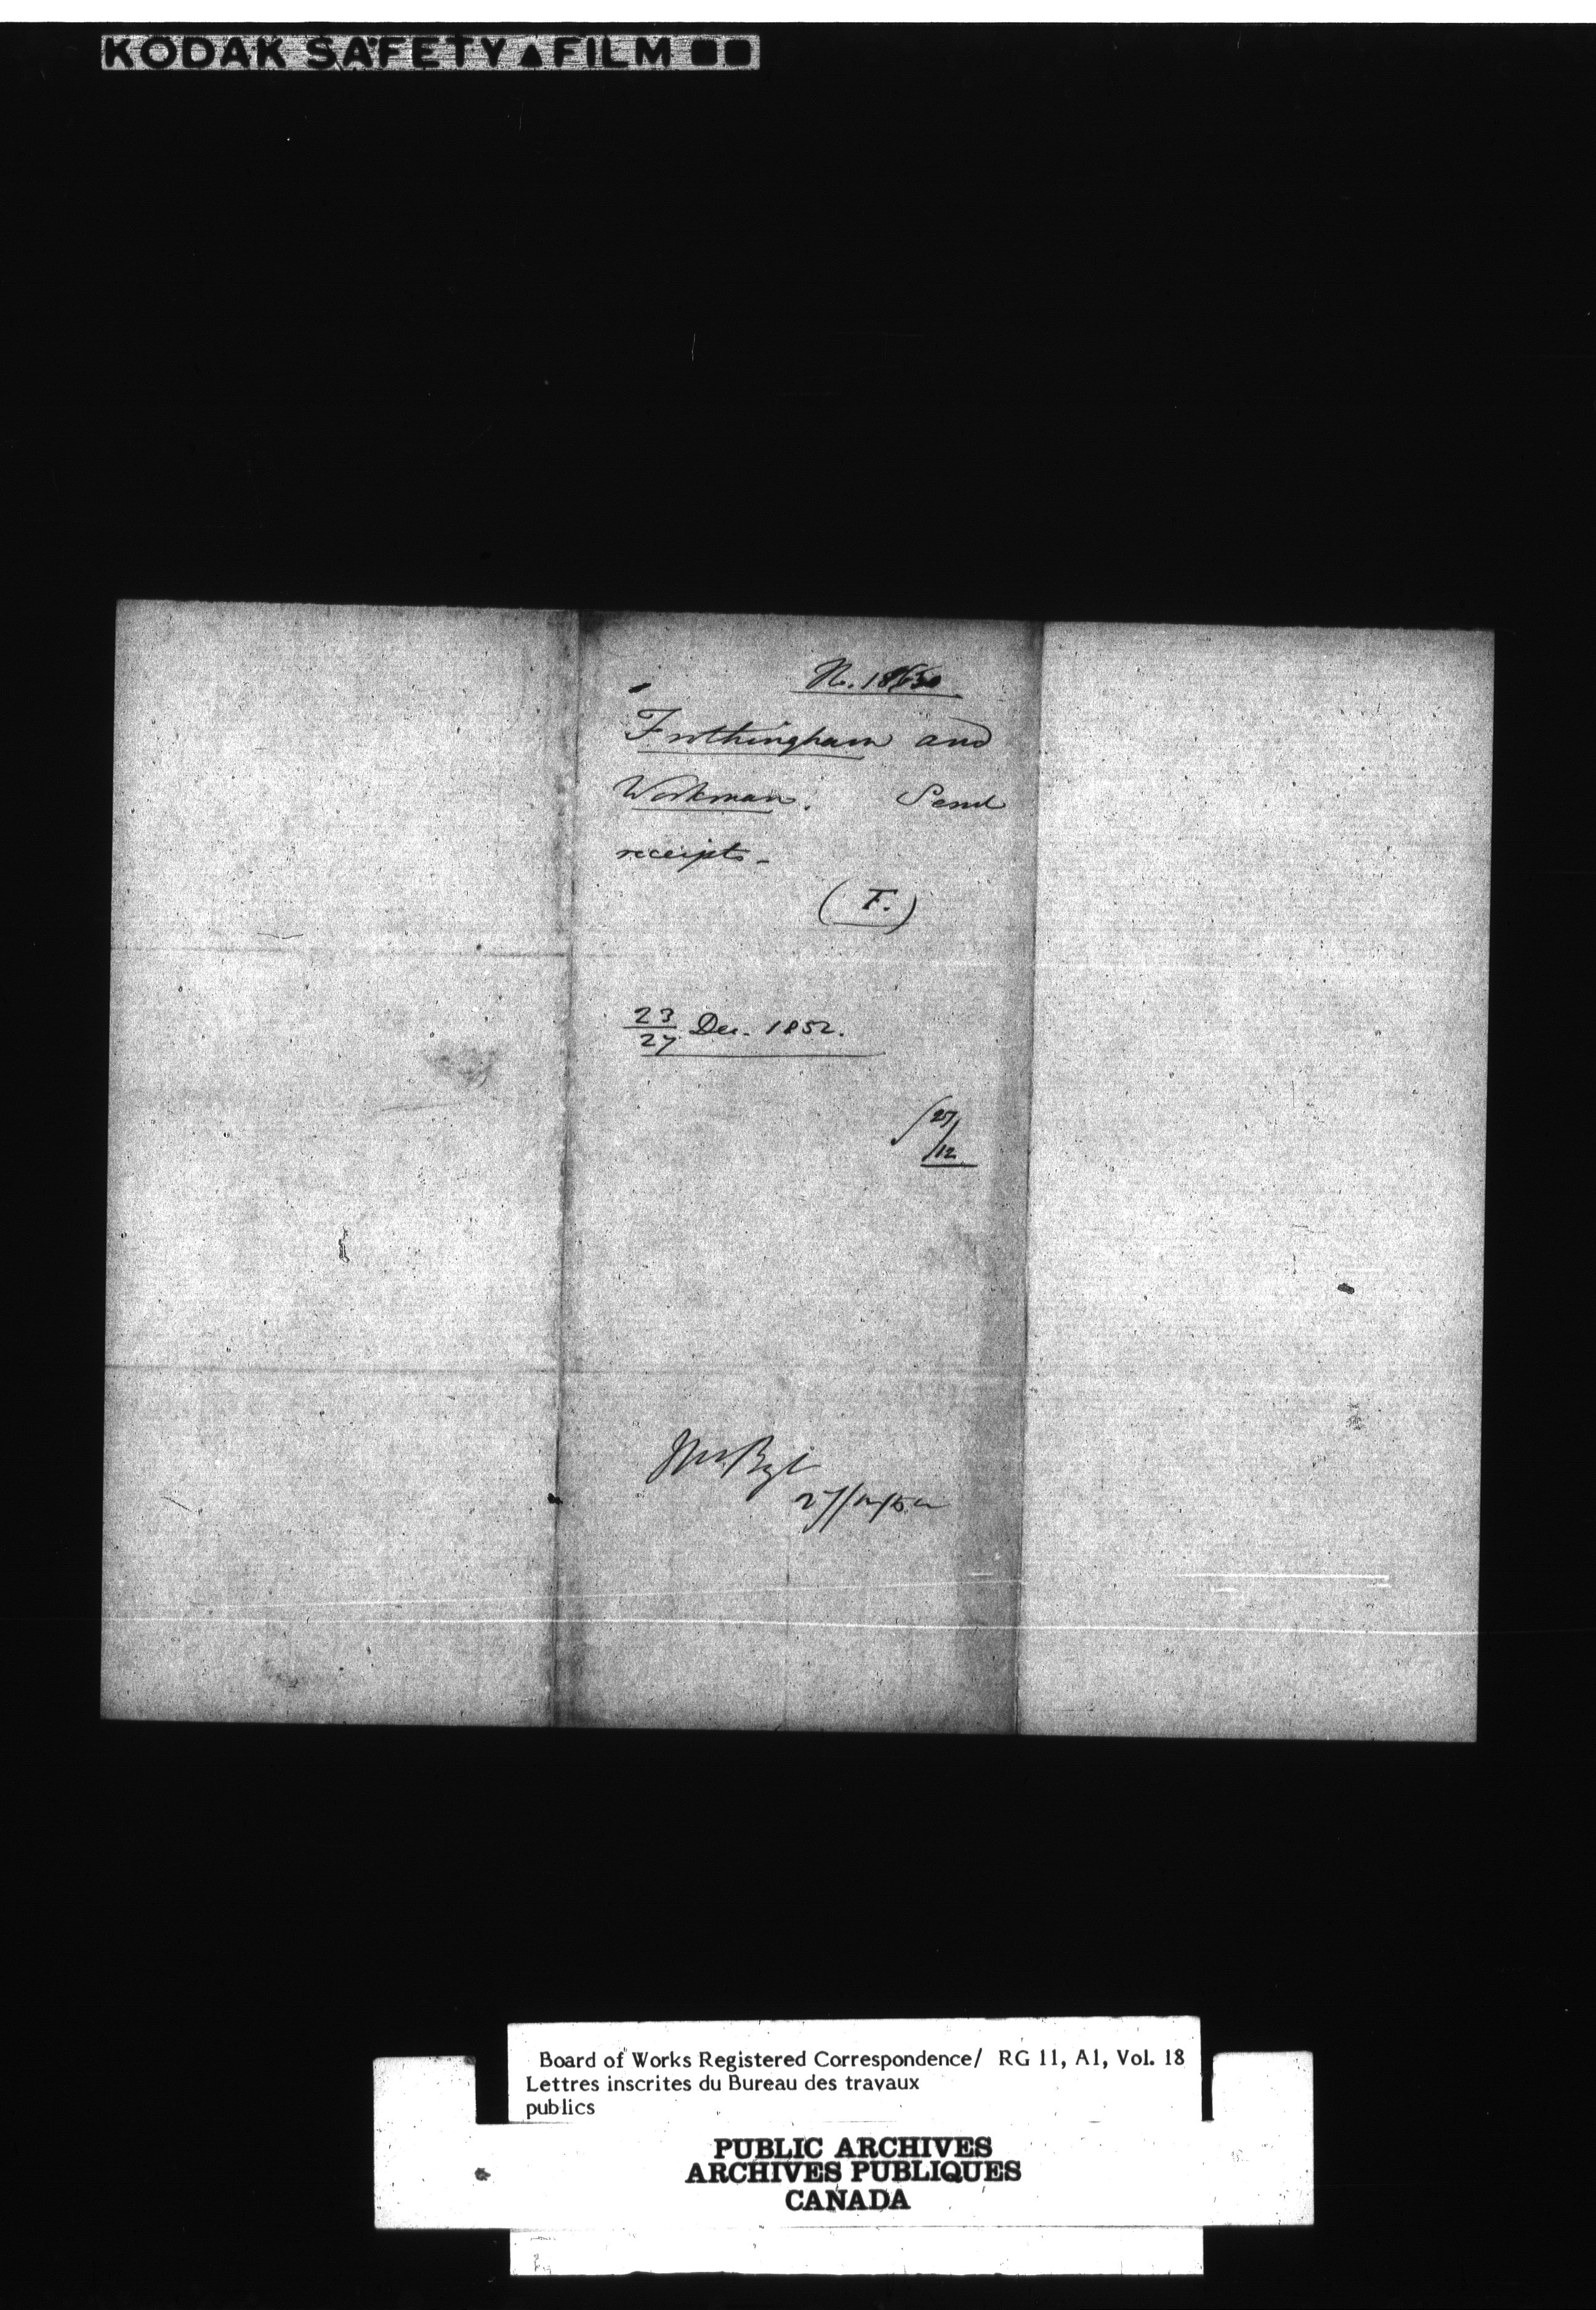 KODAK SAFETY FILM
Frothingham and
Workman. Send
receipts -
(F.)
23
27 Dec. 1852.
27/
/12
Board of Works Registered Correspondence/ RG 11, A1, Vol. 18
Lettres inscrites du Bureau des travaux
publics
PUBLIC ARCHIVES
ARCHIVES PUBLIQUES
CANADA